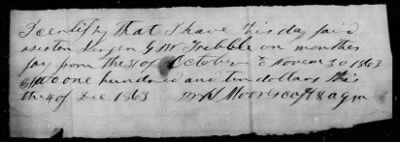 I certify that I have this day paid
Surgen G W Trebble on months
pay from the 31 of October to novem 30 1863
one hundred and ten dollars this
the 4 of Dec 1863 Wm H Moores capt & aqm